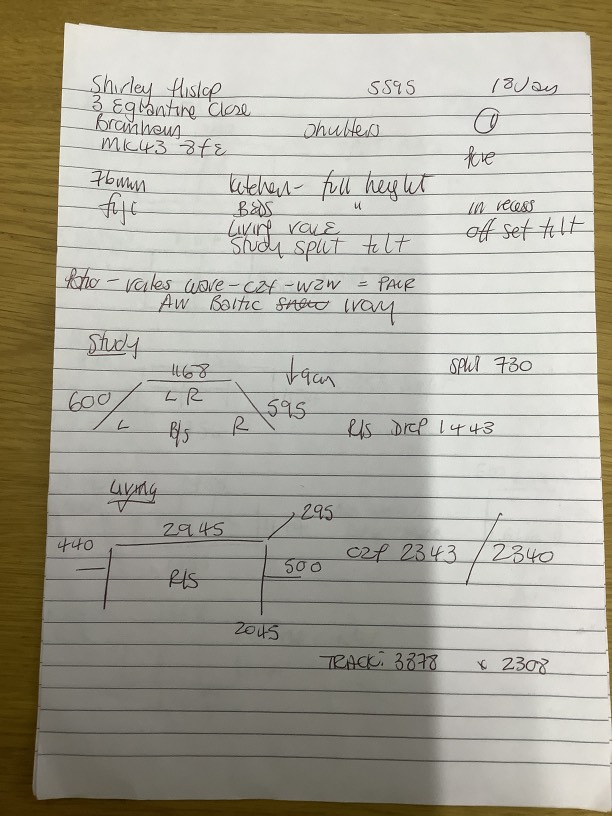 Shirley Hislop 5595 18 Jan
3 Eglantine Close
Bromham Shutters 1
MK43 8FE fove
76mm Kitchen - full height
fiji BEDS " in recess
Living voue off set tilt
Study split tilt
- voiles wave - C2f - W2W = PAIR
AW Baltic snow ivory
Study
1168 ↓9cm Split 730
600 L R 595
L B/s R R/s DrcP 1443
Living
2945 295
440 R/S 500 C2f 2343 / 2340
2045
TRACK: 3878 x 2308